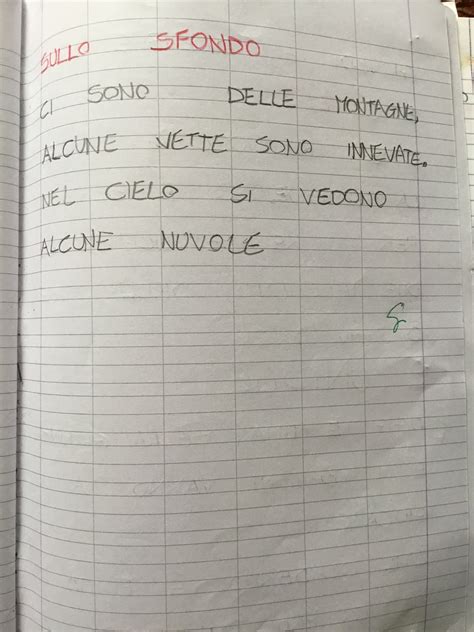 SULLO SFONDO
CI SONO DELLE MONTAGNE,
ALCUNE VETTE SONO INNEVATE.
NEL CIELO SI VEDONO
ALCUNE NUVOLE